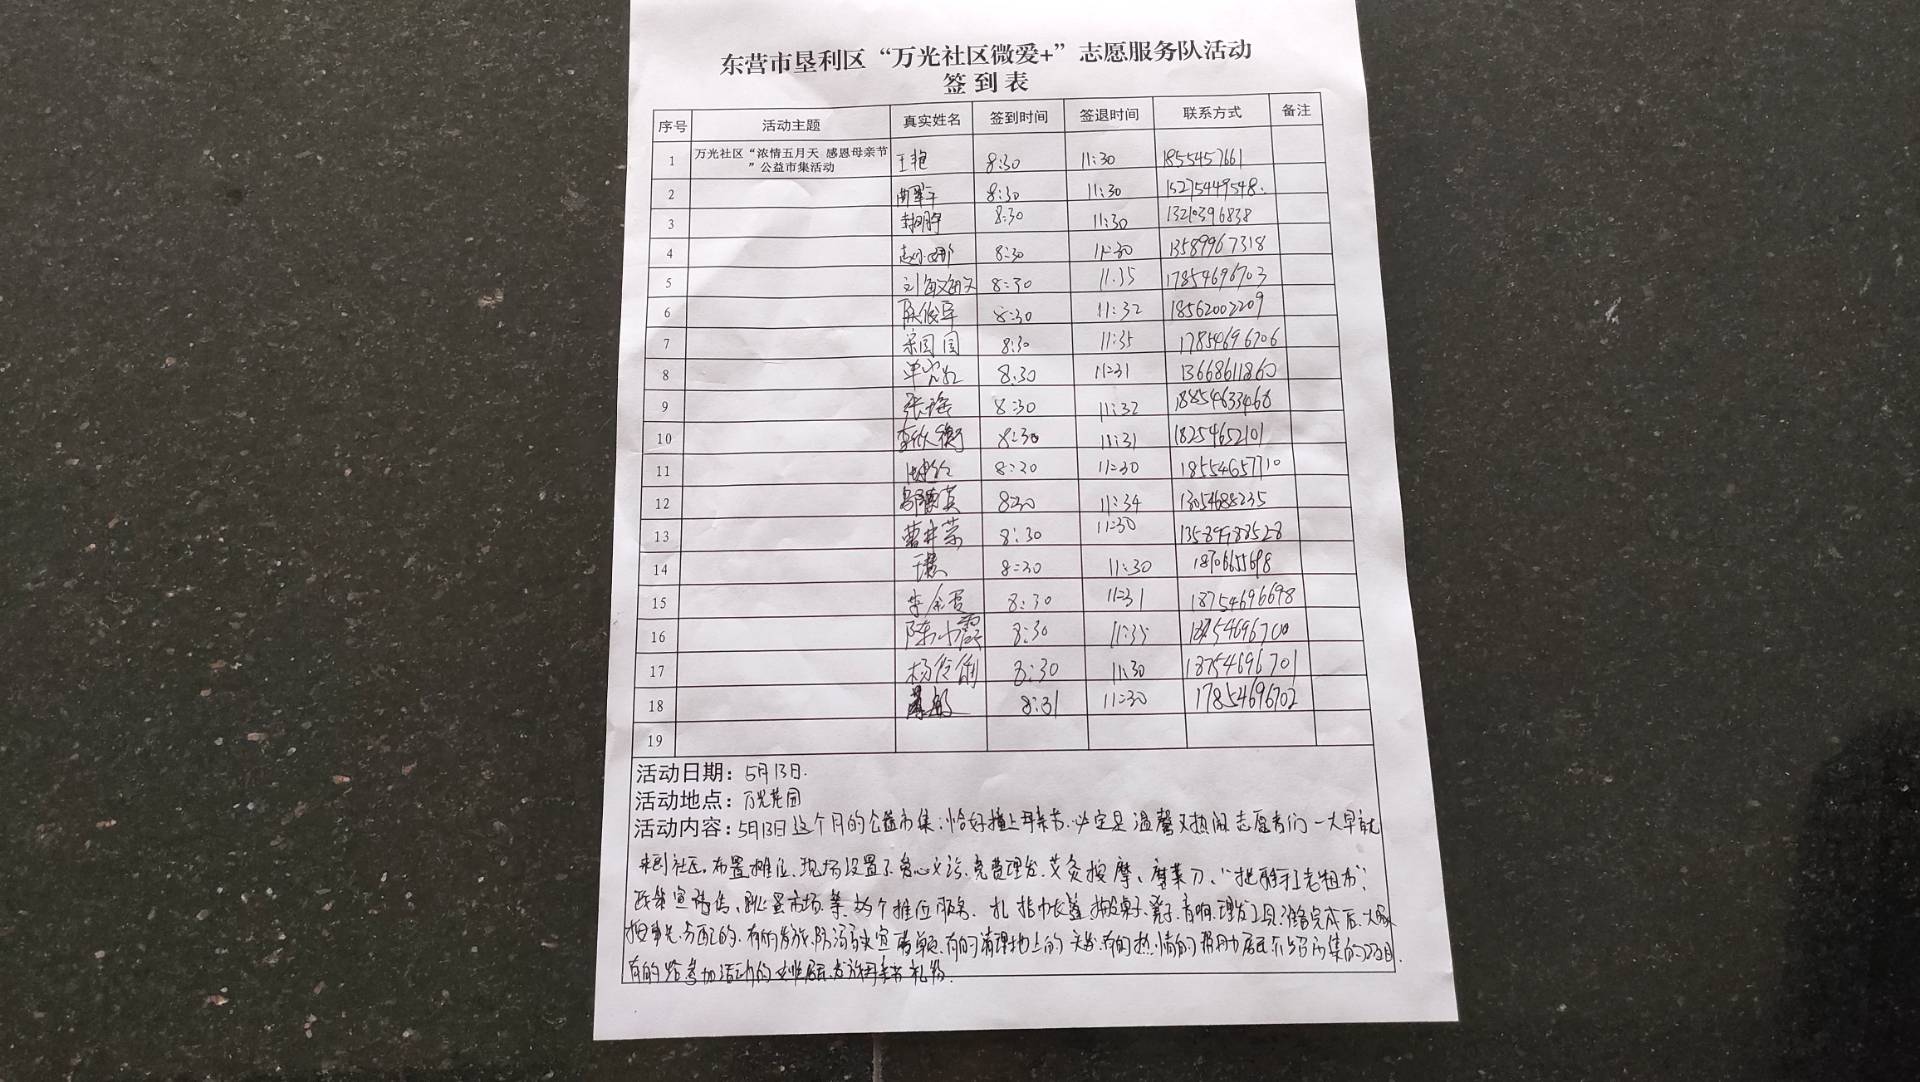 东营市垦利区“万光社区微爱+”志愿服务队活动
签到表
序号 活动主题 真实姓名 签到时间 签退时间 联系方式 备注
1 万光社区“浓情五月天 感恩母亲节”公益市集活动 王艳 8:30 11:30 1855457661
2 8:30 11:30 15275449548
3 8:30 11:30 13210396838
4 赵小娜 8:30 11:30 13589967318
5 刘海 8:30 11:35 17854696703
6 陈俊军 8:30 11:32 18562002209
7 宋园园 8:30 11:35 17854696706
8 单 红 8:30 11:31 13668611860
9 张瑶 8:30 11:32 18854633468
10 李欣衡 8:30 11:31 18254652101
11 8:30 11:30 18554657710
12 英 8:30 11:34 13054688235
13 曹井荣 8:30 11:30 13589988528
14 8:30 11:30 18706655698
15 李 霞 8:30 11:31 18754696698
16 陈小霞 8:30 11:35 54696700
17 杨伶俐 8:30 11:30 18754696701
18 敏 8:31 11:30 17854696702
19
活动日期：5月13日.
活动地点：万光花园
活动内容：5月13日这个月的公益市集，恰好撞上母亲节，必定是温馨又热闹 志愿者们一大早就
来到社区，布置摊位，现场设置了爱心义诊、免费理发、艾灸按摩、磨菜刀、
政策宣讲 、跳蚤市场等 个摊位服务. 桌子、凳子、音响、理发工具，准备完成后，大家
按事先分配的，有的发放 宣 单页，有的清理地上的 发，有的热情的 居民介绍市集的
有的给参加活动的女性居民发放母亲节礼物.